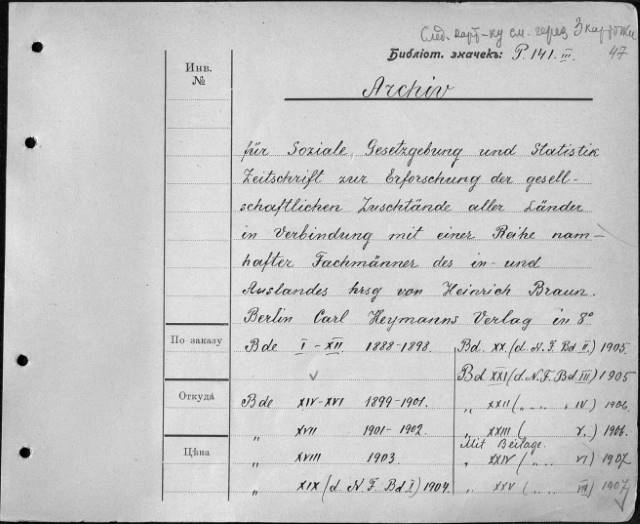 След. карт-ку см. через 3 карточки
47
Библіот. значекъ: P. 141. III.
Инв.
№
Archiv
für Soziale, Gesetzgebung und Statistik
Zeitschrift zur Erforschung der gesell-
schaftlichen Zuschtände aller Länder
in Verbindung mit einer Reihe nam-
hafter Fachmänner des in- und
Auslandes hrsg von Heinrich Braun.
Berlin Carl Heymanns Verlag in 8°
По заказу
Bde I - XII 1888-1898.
Откуда
Bde XIV-XVI 1899-1901.
„ XVII 1901-1902.
Цѣна
„ XVIII 1903.
„ XIX (d. N. F. Bd I) 1904.
Bd. XX. (d. N. F. Bd II.) 1905.
Bd XXI (d. N. F. Bd III) 1905
„ XXII ( „ .. „ IV) 1906.
„ XXIII ( „ V.) 1906.
Mit Beilage.
„ XXIV ( „ .. „ VI) 1907
„ XXV ( „ .. „ VII) 1907